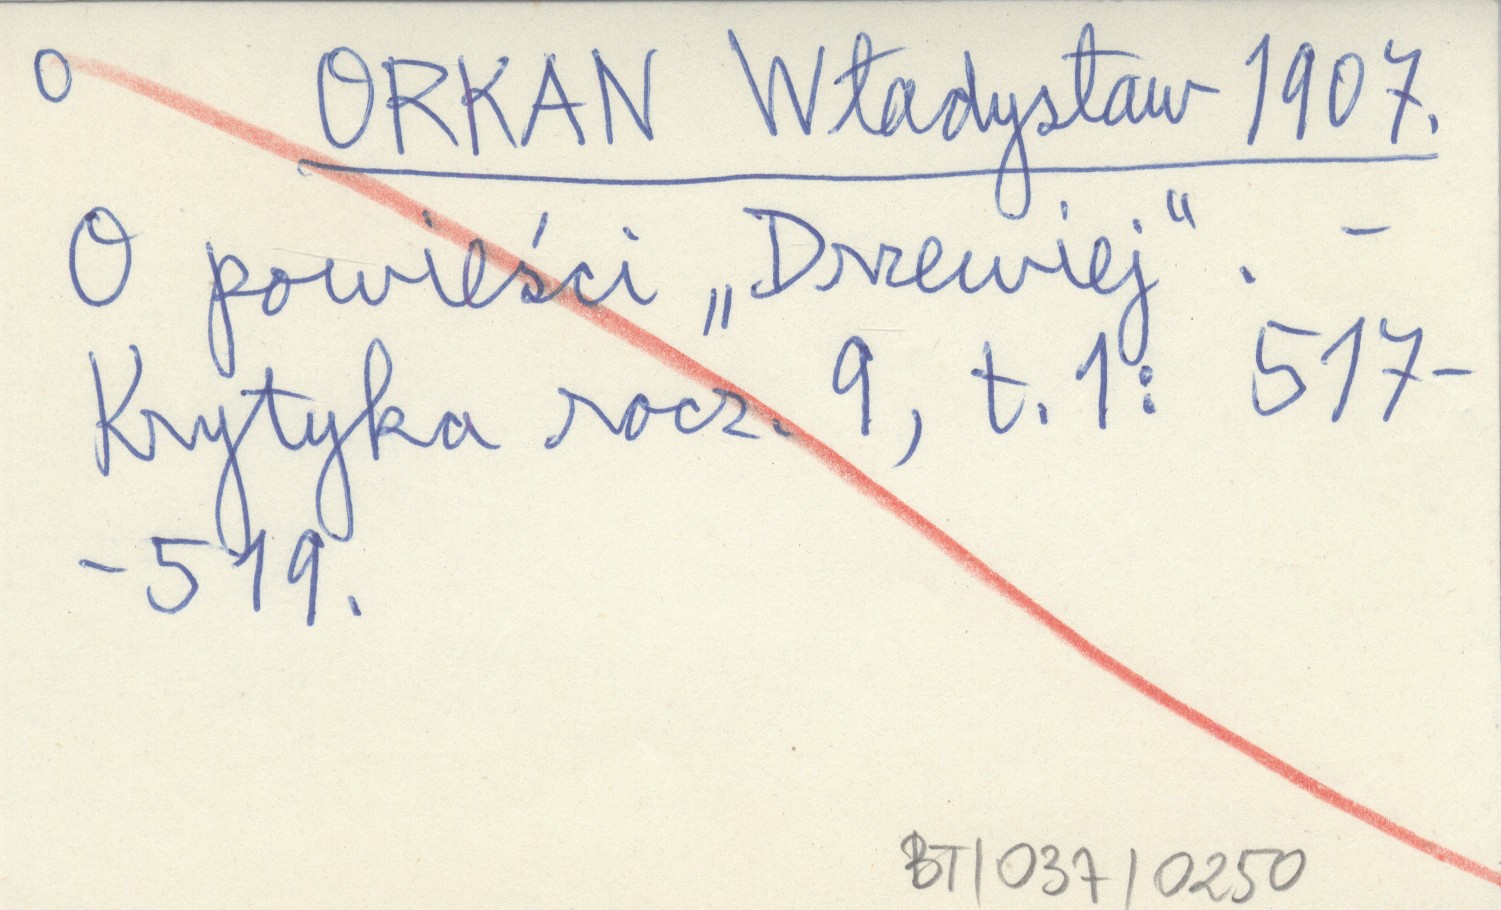 O ORKAN Władysław 1907.
O powieści „Drzewiej“. –
Krytyka rocz. 9, t. 1: 517-
-519.
BT/037/0250